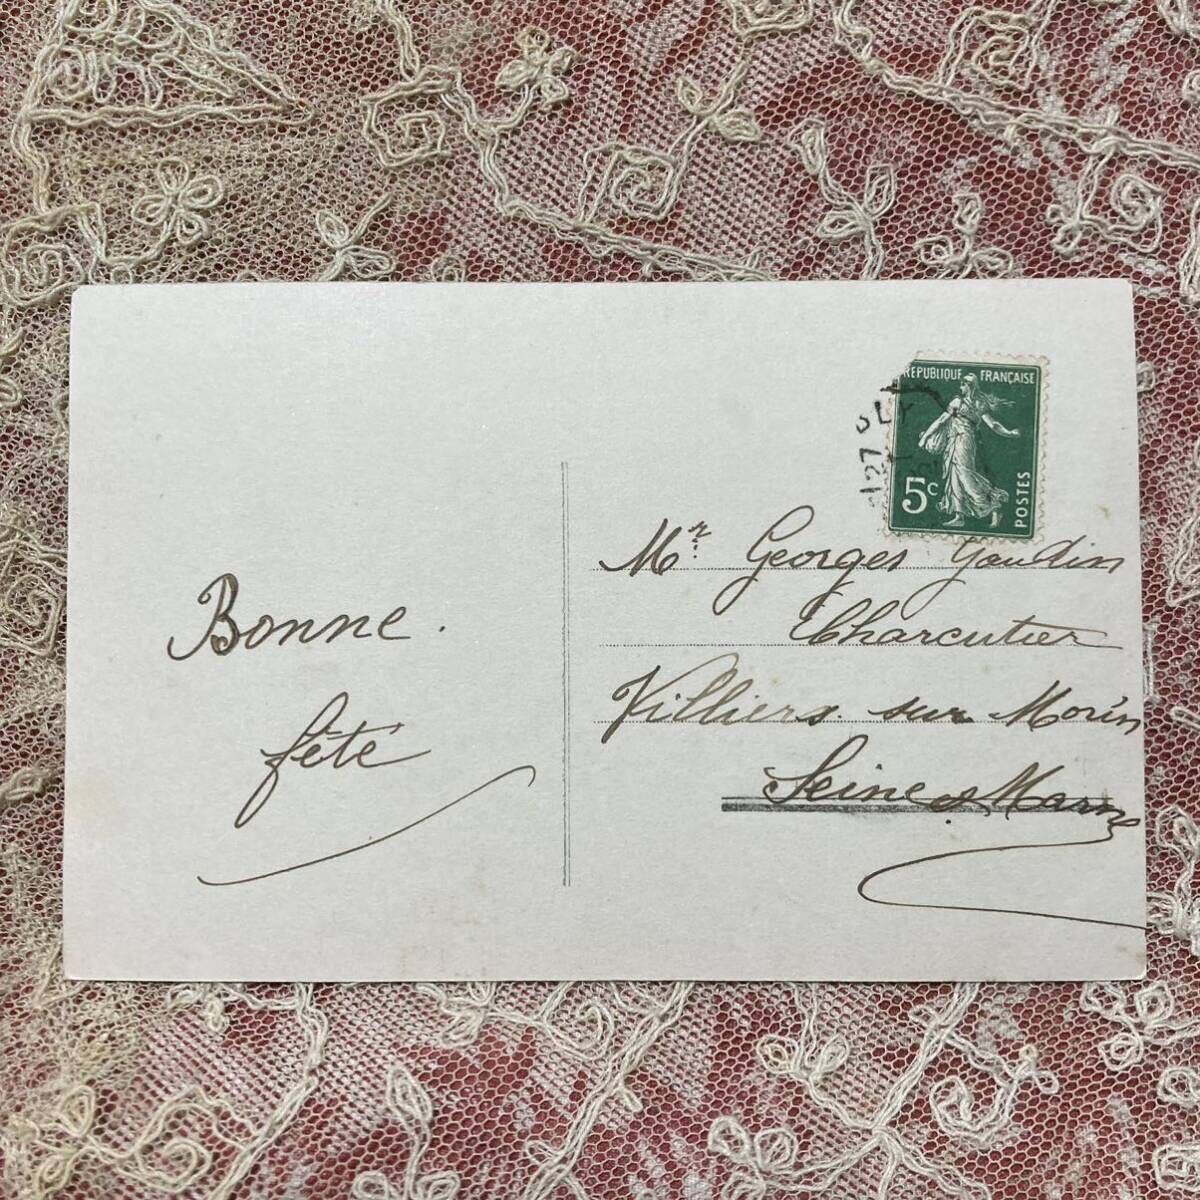 Bonne.
fêté
RÉPUBLIQUE FRANÇAISE
5c
POSTES
Mr. Georges Gaudin
Charcutier
Villiers sur Morin
Seine & Marne